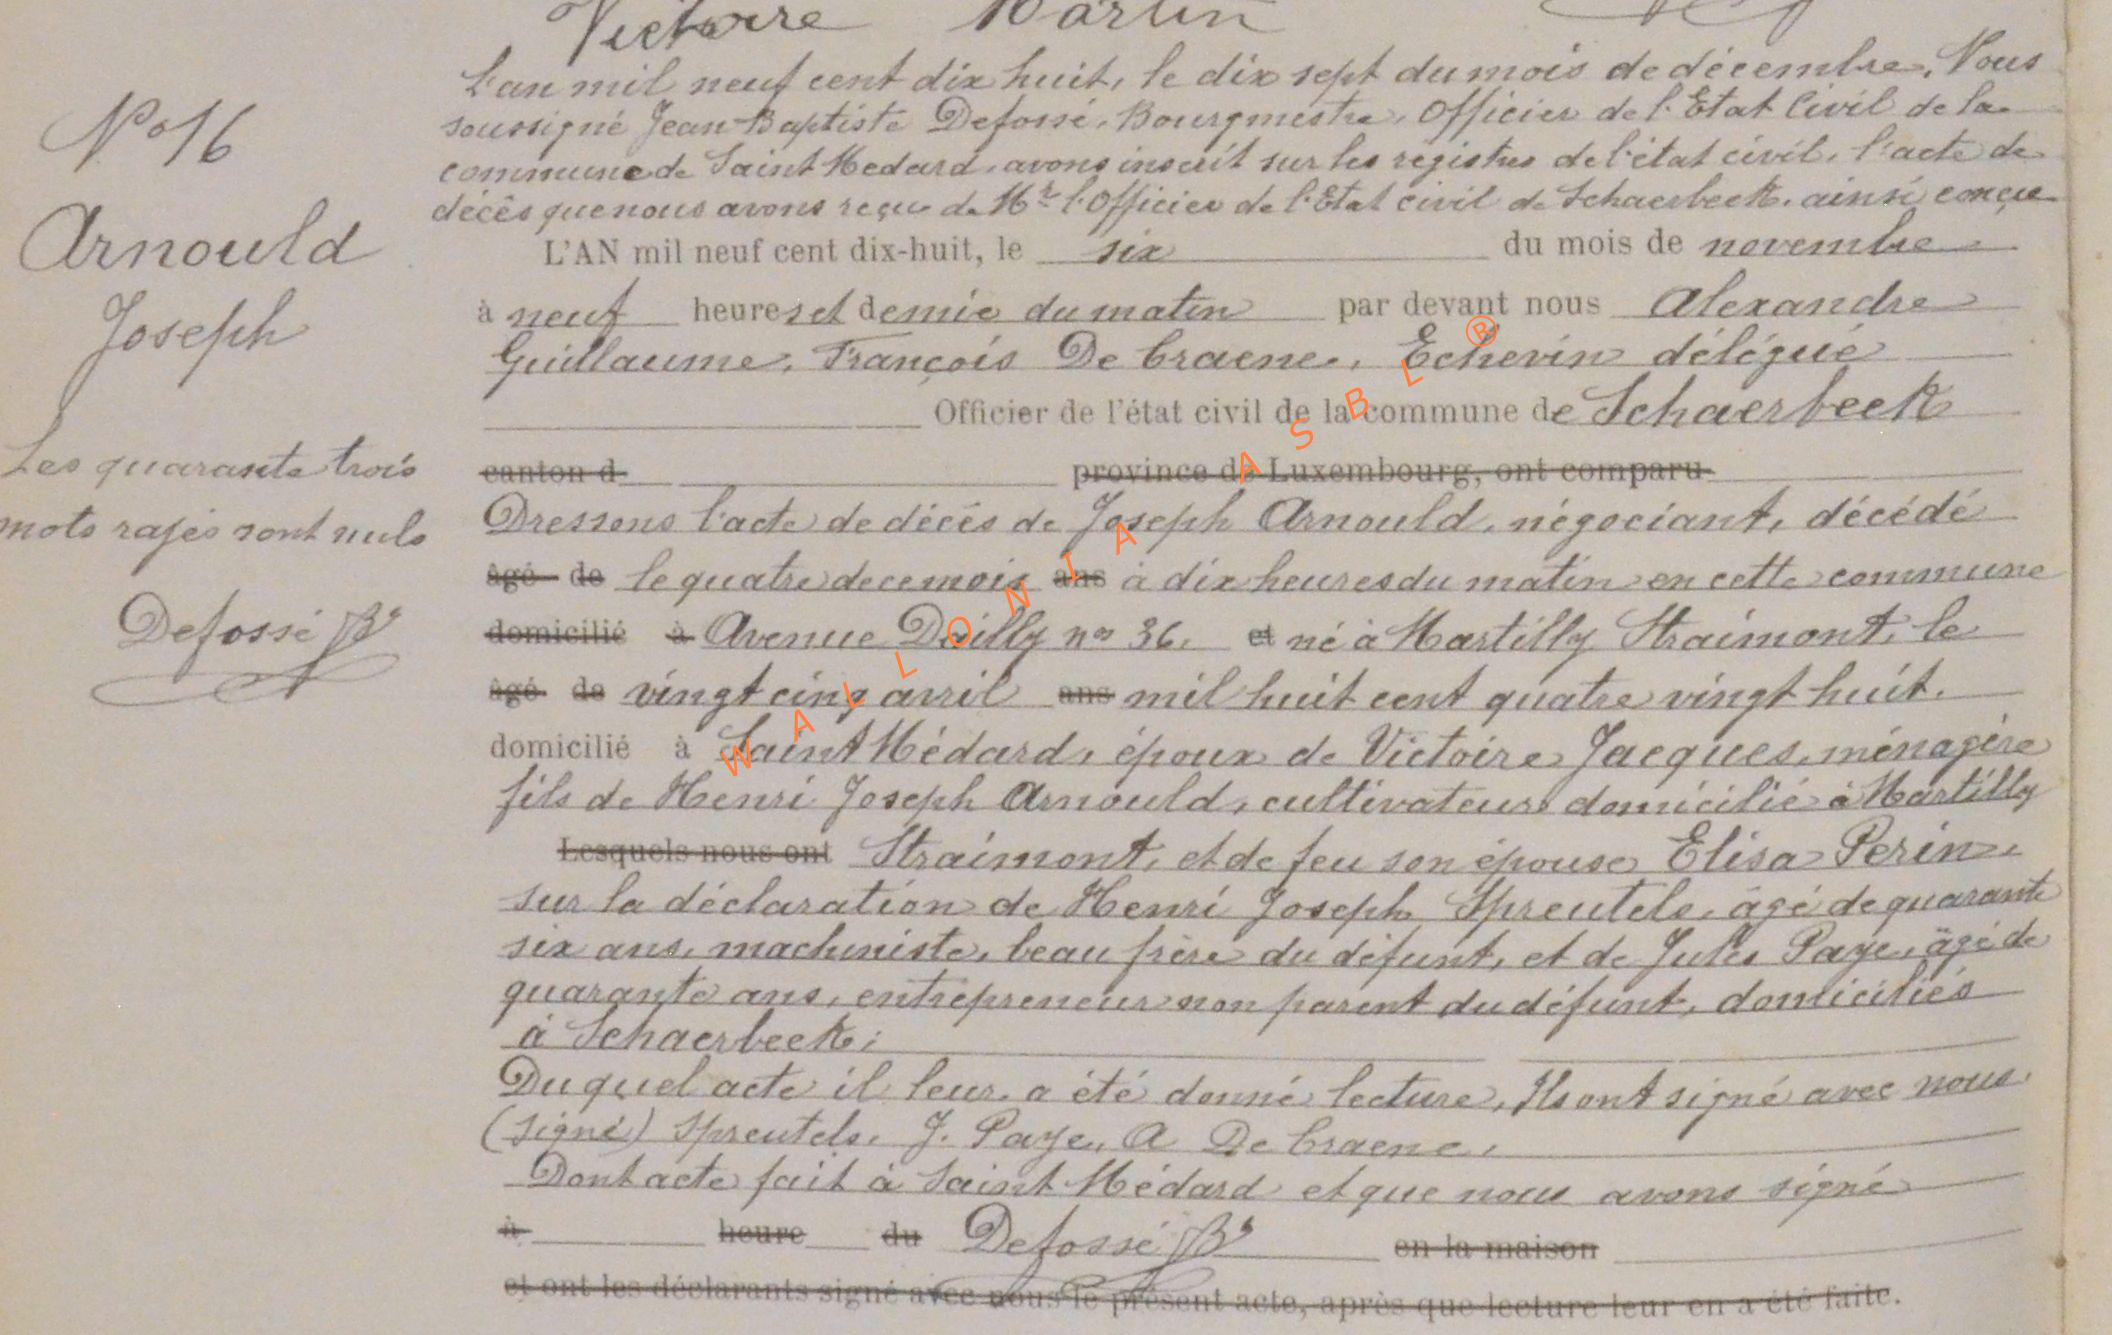 Victoire Martin
L'an mil neuf cent dix huit, le dix sept du mois de décembre, Nous
soussigné Jean Baptiste Defossé, Bourgmestre, Officier de l'Etat Civil de la
N° 16
commune de Saint Medard, avons inscrit sur les registres de l'état civil, l'acte de
décès que nous avons reçu de Mr l'Officier de l'Etat civil de Schaerbeek, ainsi conçue
Arnould
Joseph
L'AN mil neuf cent dix-huit, le six du mois de novembre
à neuf heures et demie du matin par devant nous Alexandre
Guillaume, François De Craene, Echevin délégué
Officier de l'état civil de la commune de Schaerbeek
Les quarante trois
mots rayés sont nuls
Defossé
canton d province de Luxembourg, ont comparu
Dressons l'acte de décès de Joseph Arnould, négociant, décédé
âgé de le quatre de ce mois ans à dix heures du matin en cette commune
domicilié à Avenue Dailly no 36. et né à Martilly Straimont, le
âgé de vingt cinq avril ans mil huit cent quatre vingt huit.
domicilié à Saint Médard, époux de Victoire Jacques, ménagère
fils de Henri Joseph Arnould, cultivateur domicilié à Martilly
Lesquels nous ont Straimont, et de feu son épouse Elisa Perin,
sur la déclaration de Henri Joseph Spreutels, âgé de quarante
six ans, machiniste, beau frère du défunt, et de Jules Paye, âgé de
quarante ans, entrepreneur non parent du défunt, domiciliés
à Schaerbeek;
Duquel acte il leur a été donné lecture, Ils ont signé avec nous
(signé) Spreutels, J. Paye, A De Craene,
Dont acte fait à Saint Médard et que nous avons signé
à heure du Defossé en la maison
et ont les déclarants signé avec nous le présent acte, après que lecture leur en a été faite.
WALLONIA ASBL ®